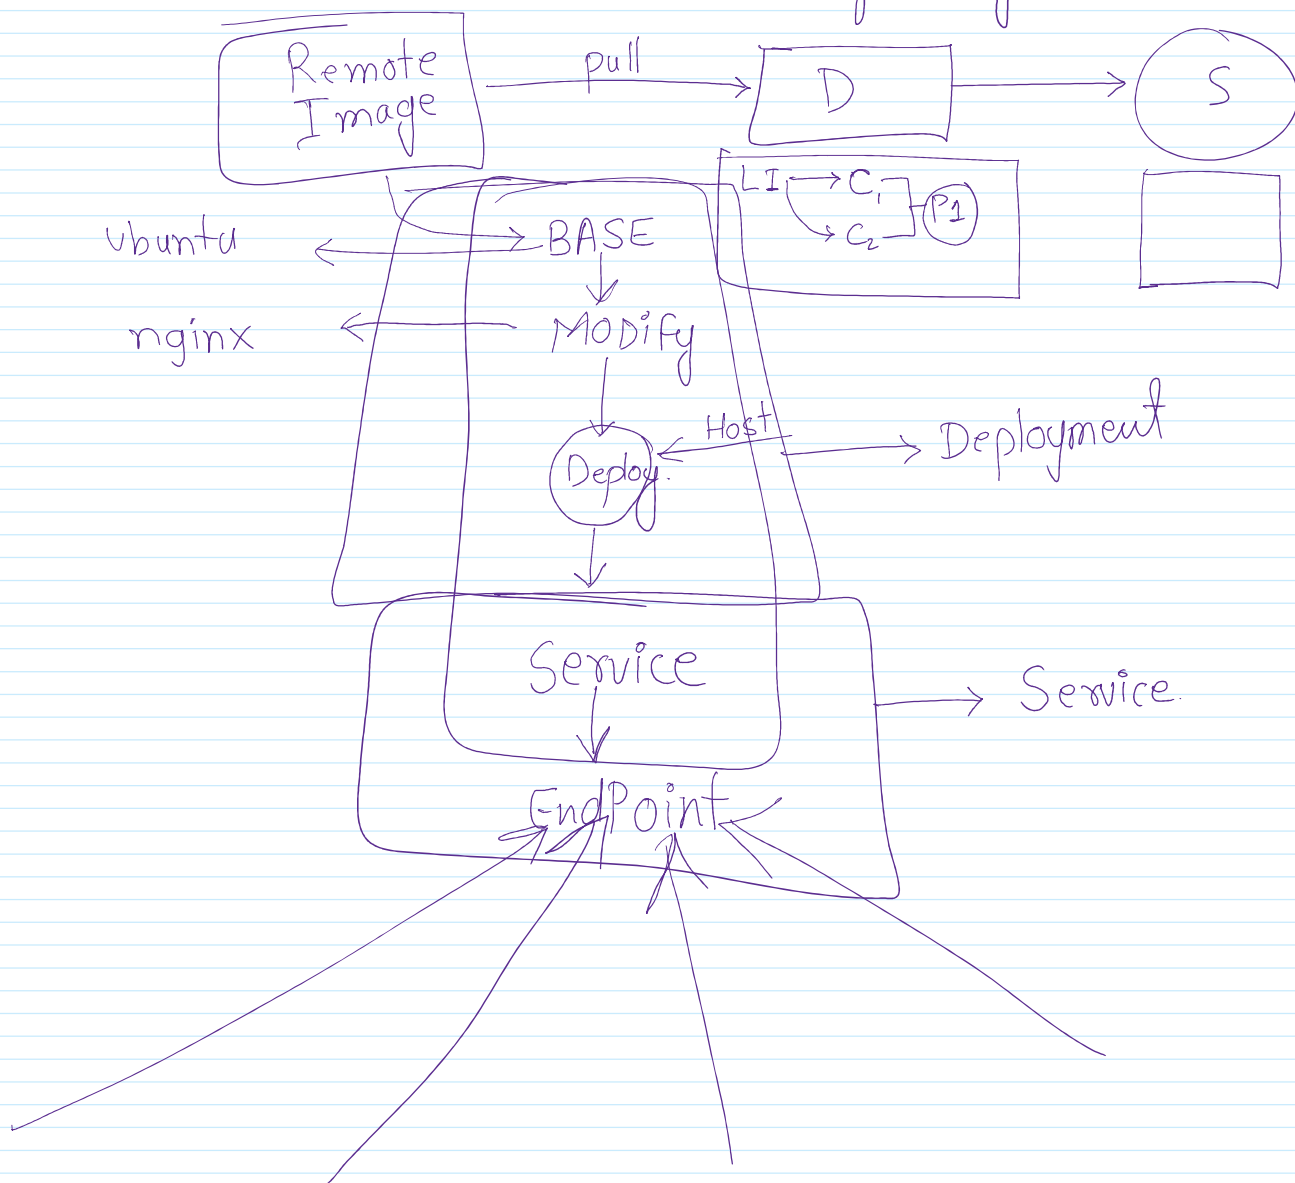 Remote
Image
pull
D
S
LI
C1
C2
P1
ubuntu
BASE
nginx
MODify
Host
Deployment
Deploy.
Service
Service.
EndPoint